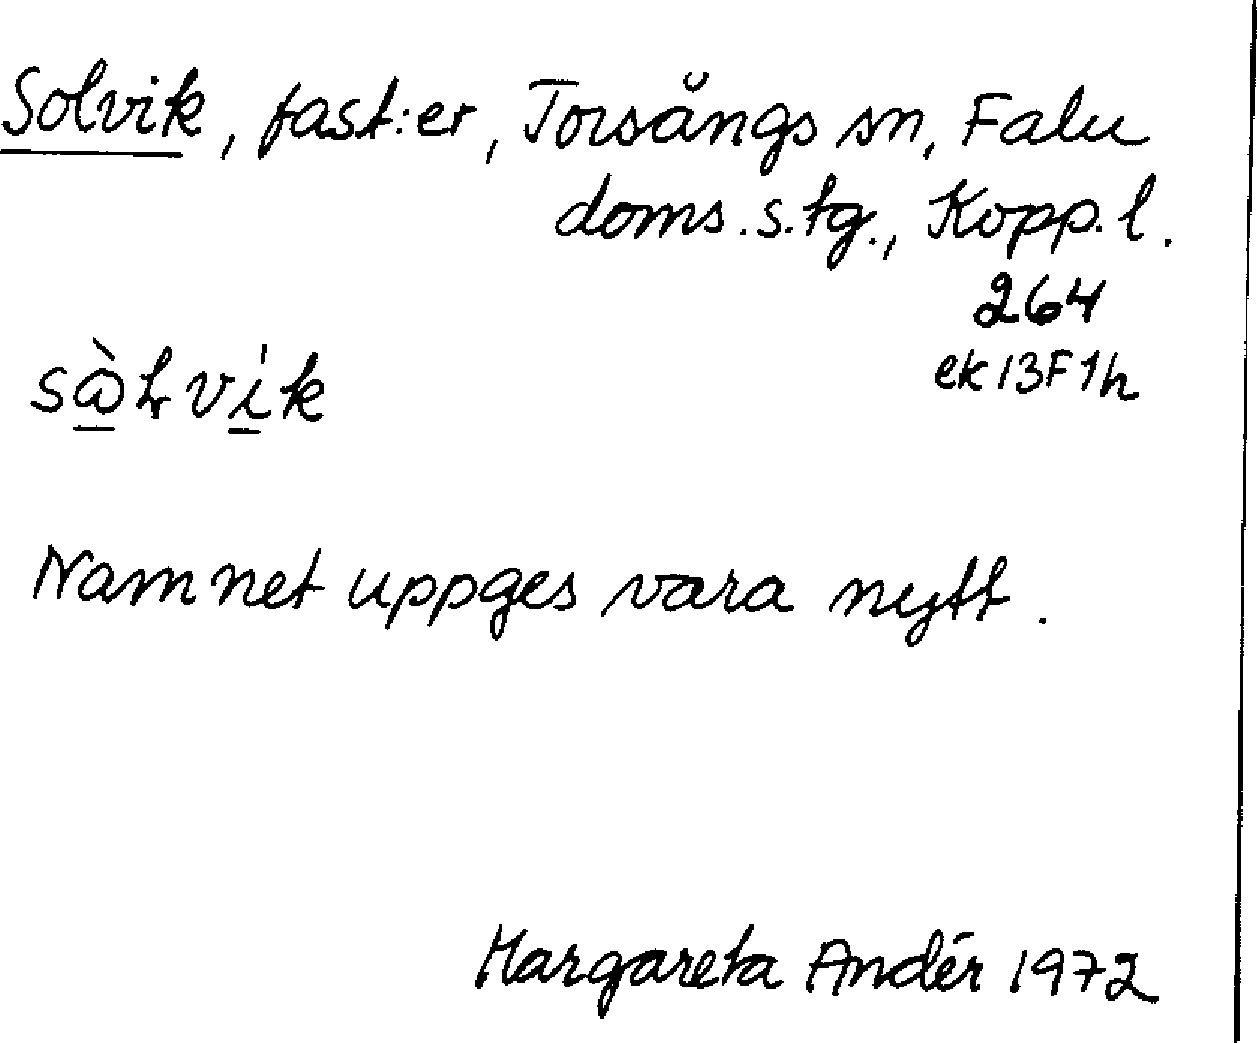 Solvik, fast:er, Torsångs sn, Falu
doms.s.tg., Kopp.l.
264
ek 13F 1h
Namnet uppges vara nytt.
Margareta Andér 1972